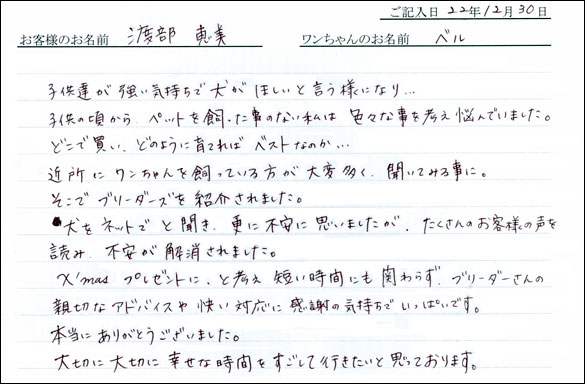 ご記入日 22年12月30日
お客様のお名前 渡部 恵美 ワンちゃんのお名前 ベル
子供達が強い気持ちで犬がほしいと言う様になり…
子供の頃から、ペットを飼った事のない私は色々な事を考え悩んでいました。
どこで買い、どのように育てればベストなのか…
近所にワンちゃんを飼っている方が大変多く、聞いてみる事に。
そこでブリーダーズを紹介されました。
犬をネットでと聞き、更に不安に思いましたが、たくさんのお客様の声を
読み、不安が解消されました。
X'masプレゼントに、と考え短い時間にも関わらず、ブリーダーさんの
親切なアドバイスや快い対応に感謝の気持ちでいっぱいです。
本当にありがとうございました。
大切に大切に幸せな時間をすごして行きたいと思っております。